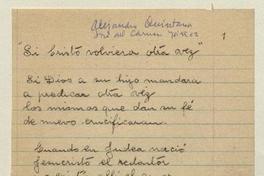 Alejandro Quintana
José del Carmen
1
"Si Cristo volviera otra vez"
Si Dios a su hijo mandara
a predicar otra vez
los mismos que dan su fé
de nuevo crucificaran.
Cuando en Judea nació
Jesucristo el redentor